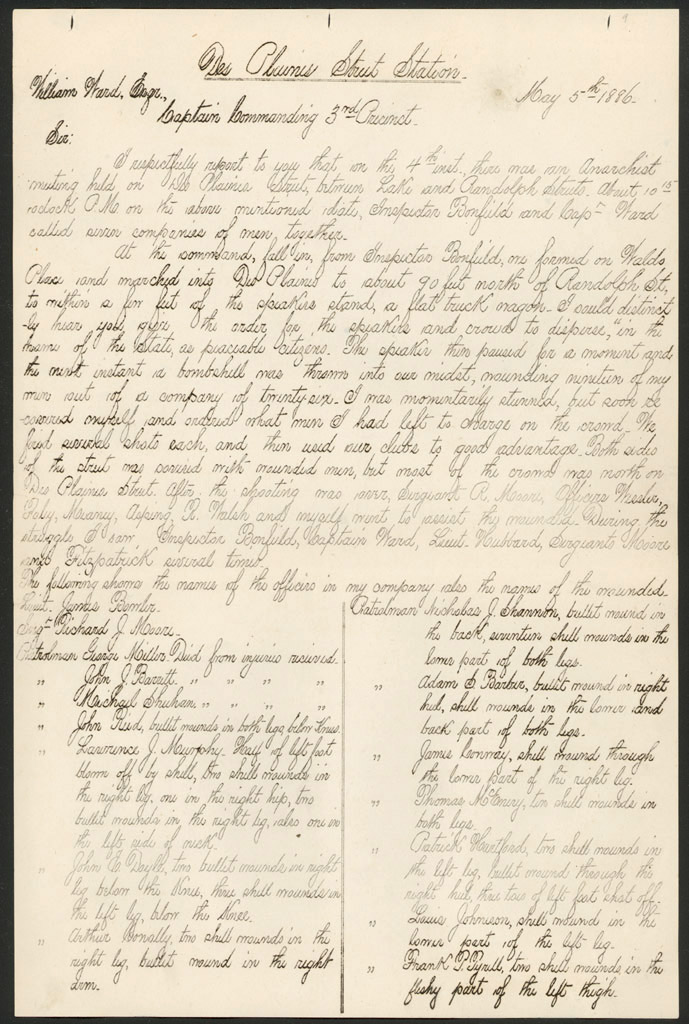 Des Plaines Street Station.
William Ward, Esqr.,
May 5th 1886.
Captain Commanding 3rd Precinct.
Sir:
I respectfully report to you that on the 4th inst. there was an Anarchist
meeting held on Des Plaines Street, between Lake and Randolph Streets. About 10 15
o'clock P.M. on the above mentioned date, Inspector Bonfield and Capt Ward
called seven companies of men, together.
At the command, fall in, from Inspector Bonfield, we formed on Waldo
Place and marched into Des Plaines to about 90 feet north of Randolph St,
to within a few feet of the speakers stand, a flat truck wagon. I could distinct
-ly hear you give, the order for, the speakers and crowd to disperse, "in the
name of the State, as peaceable citizens. The speaker then paused for a moment and
the next instant a bombshell was thrown into our midst, wounding nineteen of my
men out of a company of twenty six. I was momentarily stunned, but soon re
-covered myself and ordered what men I had left to charge on the crowd. We
fired several shots each, and then used our clubs to good advantage. Both sides
of the street was covered with wounded men, but most of the crowd was north on
Des Plaines Street. After the shooting was over, Sergeant R. Moore, Officers Wessler,
Foley, Meaney, Asping, R. Walsh and myself went to assist the wounded. During the
struggle I saw Inspector Bonfield, Captain Ward, Lieut. Hubbard, Sergeants Moore
and Fitzpatrick several times.
The following shows the names of the officers in my company also the names of the wounded.
Lieut. James Bowler.
Sergt. Richard J. Moore.
Patrolman George Miller. Died from injuries received.
" John J. Barrett. " " " "
" Michael Sheehan. " " " "
" John Reid, bullet wounds in both legs, below Knees.
" Lawrence J. Murphy. Half of left foot
blown off by shell, two shell wounds in
the right leg, one in the right hip, two
bullet wounds in the right leg, also one in
the left side of neck.
" John E. Doyle, two bullet wounds in right
leg below the Knee, three shell wounds in
the left leg, below the Knee.
" Arthur Conolly, two shell wounds in the
right leg, bullet wound in the right
arm.
Patrolman Nicholas J. Shannon, bullet wound in
the back, seventeen shell wounds in the
lower part of both legs.
" Adam S. Barber, bullet wound in right
heel, shell wounds in the lower and
back part of both legs.
" James Conway, shell wound through
the lower part of the right leg.
" Thomas McEnery, ten shell wounds in
both legs.
" Patrick Hartford, two shell wounds in
the left leg, bullet wound through the
right heel, three toes of left foot shot off.
" Louis Johnson, shell wound in the
lower part of the left leg.
" Frank P. Tyrell, two shell wounds in the
fleshy part of the left thigh.